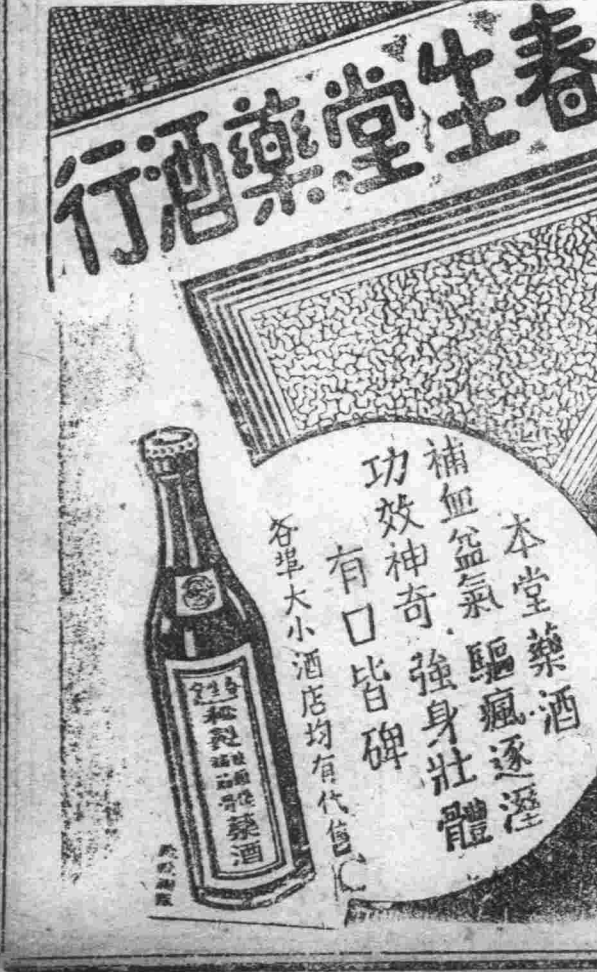 春生堂藥酒行
本堂藥酒
補血益氣 驅瘋逐溼
功效神奇·強身壯體
有口皆碑
各埠大小酒店均有代售
春生堂
秘製
藥酒